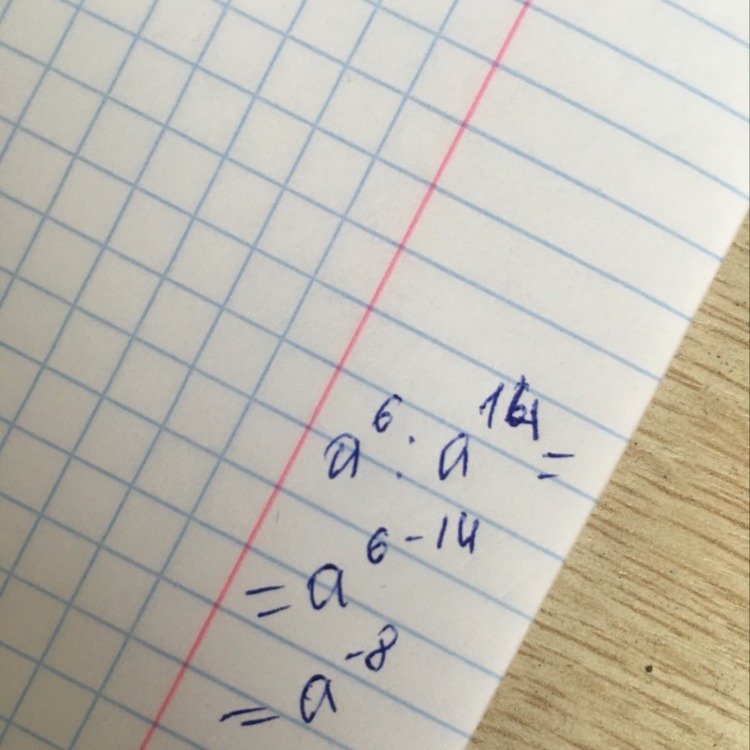 a⁶ : a¹⁴ =
= a⁶⁻¹⁴
= a⁻⁸